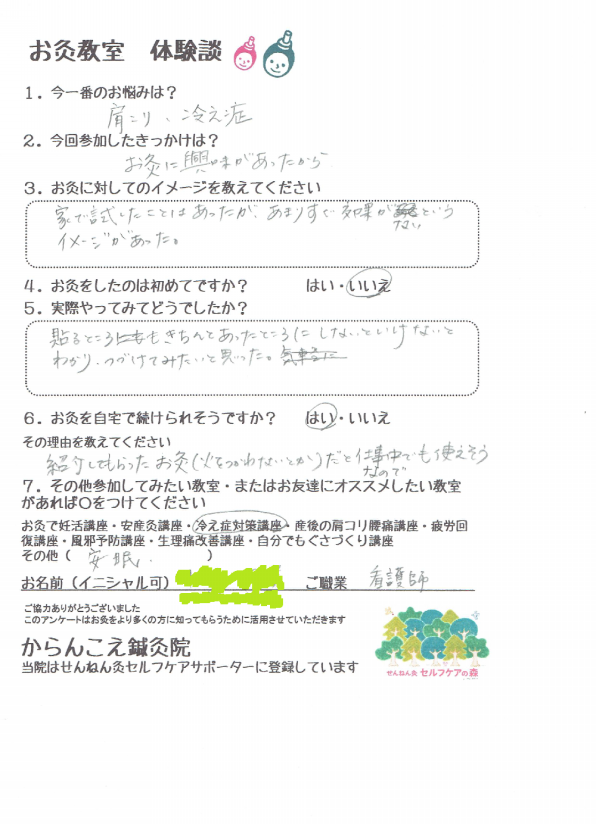 お灸教室　体験談
１．今一番のお悩みは？
肩こり、冷え症
２．今回参加したきっかけは？
お灸に興味があったから
３．お灸に対してのイメージを教えてください
家で試したことはあったが、あまりすぐ効果がないという
イメージがあった。
４．お灸をしたのは初めてですか？　はい・いいえ
５．実際やってみてどうでしたか？
貼るところにもきちんとあったところにしないといけないと
わかり、つづけてみたいと思った。気軽に
６．お灸を自宅で続けられそうですか？　はい・いいえ
その理由を教えてください
紹介してもらったお灸（火をつかわないとか）だと仕事中でも使えそう
なので
７．その他参加してみたい教室・またはお友達にオススメしたい教室
があれば〇をつけてください
お灸で妊活講座・安産灸講座・冷え症対策講座・産後の肩コリ腰痛講座・疲労回
復講座・風邪予防講座・生理痛改善講座・自分でもぐさづくり講座
その他（　安眠．　）
お名前（イニシャル可）　ご職業　看護師
ご協力ありがとうございました
このアンケートはお灸をより多くの方に知ってもらうために活用させていただきます
からんこえ鍼灸院
当院はせんねん灸セルフケアサポーターに登録しています
せんねん灸 セルフケアの森